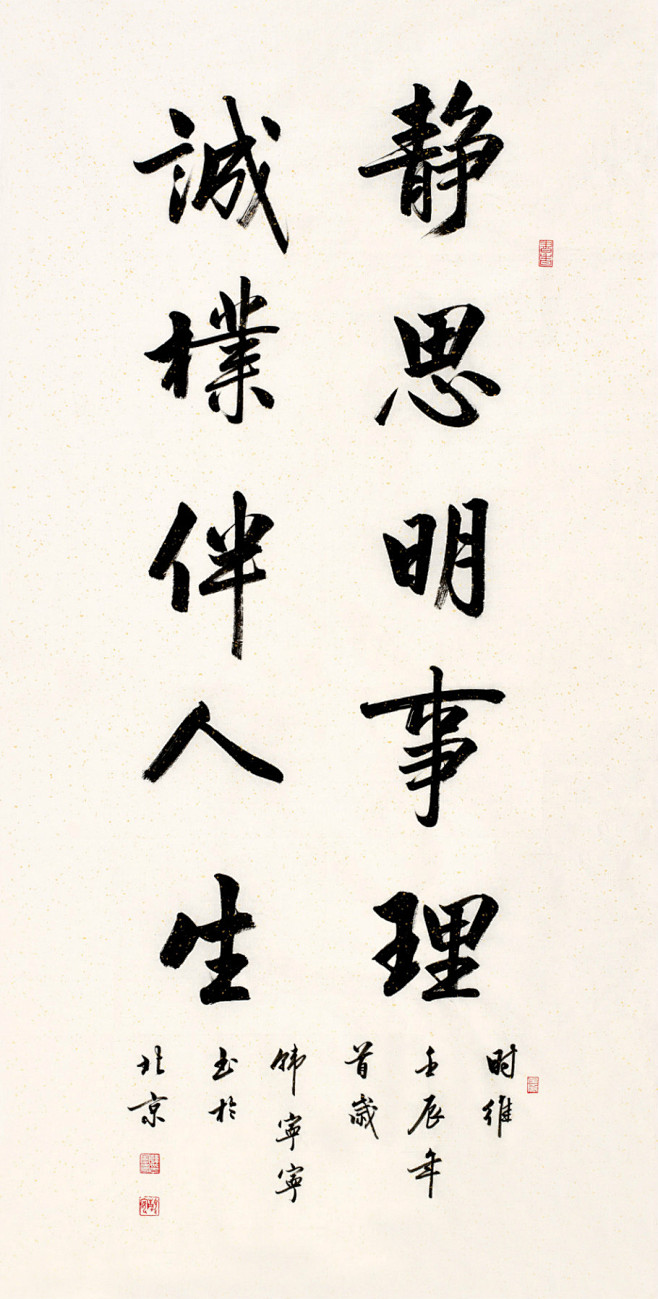 静思明事理
誠樸伴人生
时维
壬辰年
首歲
韩寧寧
书於
北京